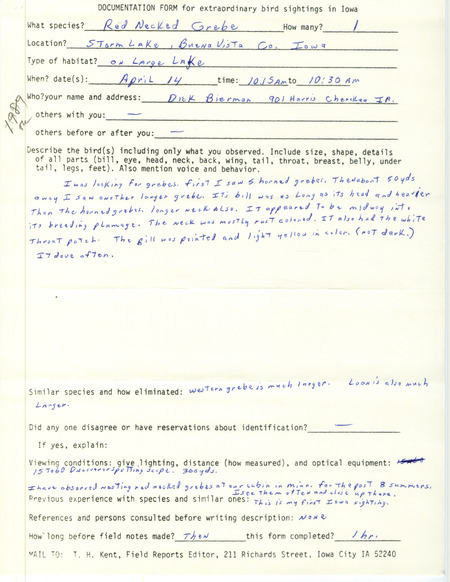 DOCUMENTATION FORM for extraordinary bird sightings in Iowa
What species? Red Necked Grebe How many? 1
Location? Storm Lake, Buena Vista Co. Iowa
Type of habitat? on Large Lake
When? date(s): April 14 time: 1015Am to 10:30 Am
Who?your name and address: Dick Bierman 901 Harris Cherokee IA.
1989
others with you: —
others before or after you: —
Describe the bird(s) including only what you observed. Include size, shape, details
of all parts (bill, eye, head, neck, back, wing, tail, throat, breast, belly, under
tail, legs, feet). Also mention voice and behavior.
I was looking for grebes. First I saw 5 horned grebes. Then about 50 yds
away I saw another larger grebe. It's bill was as long as its head and heavier
Than the horned grebes. longer neck also. It appeared to be midway into
its breeding plumage. The neck was mostly rust colored. It also had the white
Throat patch. The bill was pointed and light yellow in color. (not dark.)
It dove often.
Similar species and how eliminated: Western grebe is much larger. Loon is also much
Larger.
Did any one disagree or have reservations about identification? —
If yes, explain:
Viewing conditions: give lighting, distance (how measured), and optical equipment:
15 To 60 Discoverer spotting scope. 300 yds.
I have observed nesting red necked grebes at our cabin in minn. for the past 8 summers.
I see them often and close up there.
Previous experience with species and similar ones: This is my first Iowa sighting.
References and persons consulted before writing description: None
How long before field notes made? Then this form completed? 1 hr.
MAIL TO: T. H. Kent, Field Reports Editor, 211 Richards Street, Iowa City IA 52240